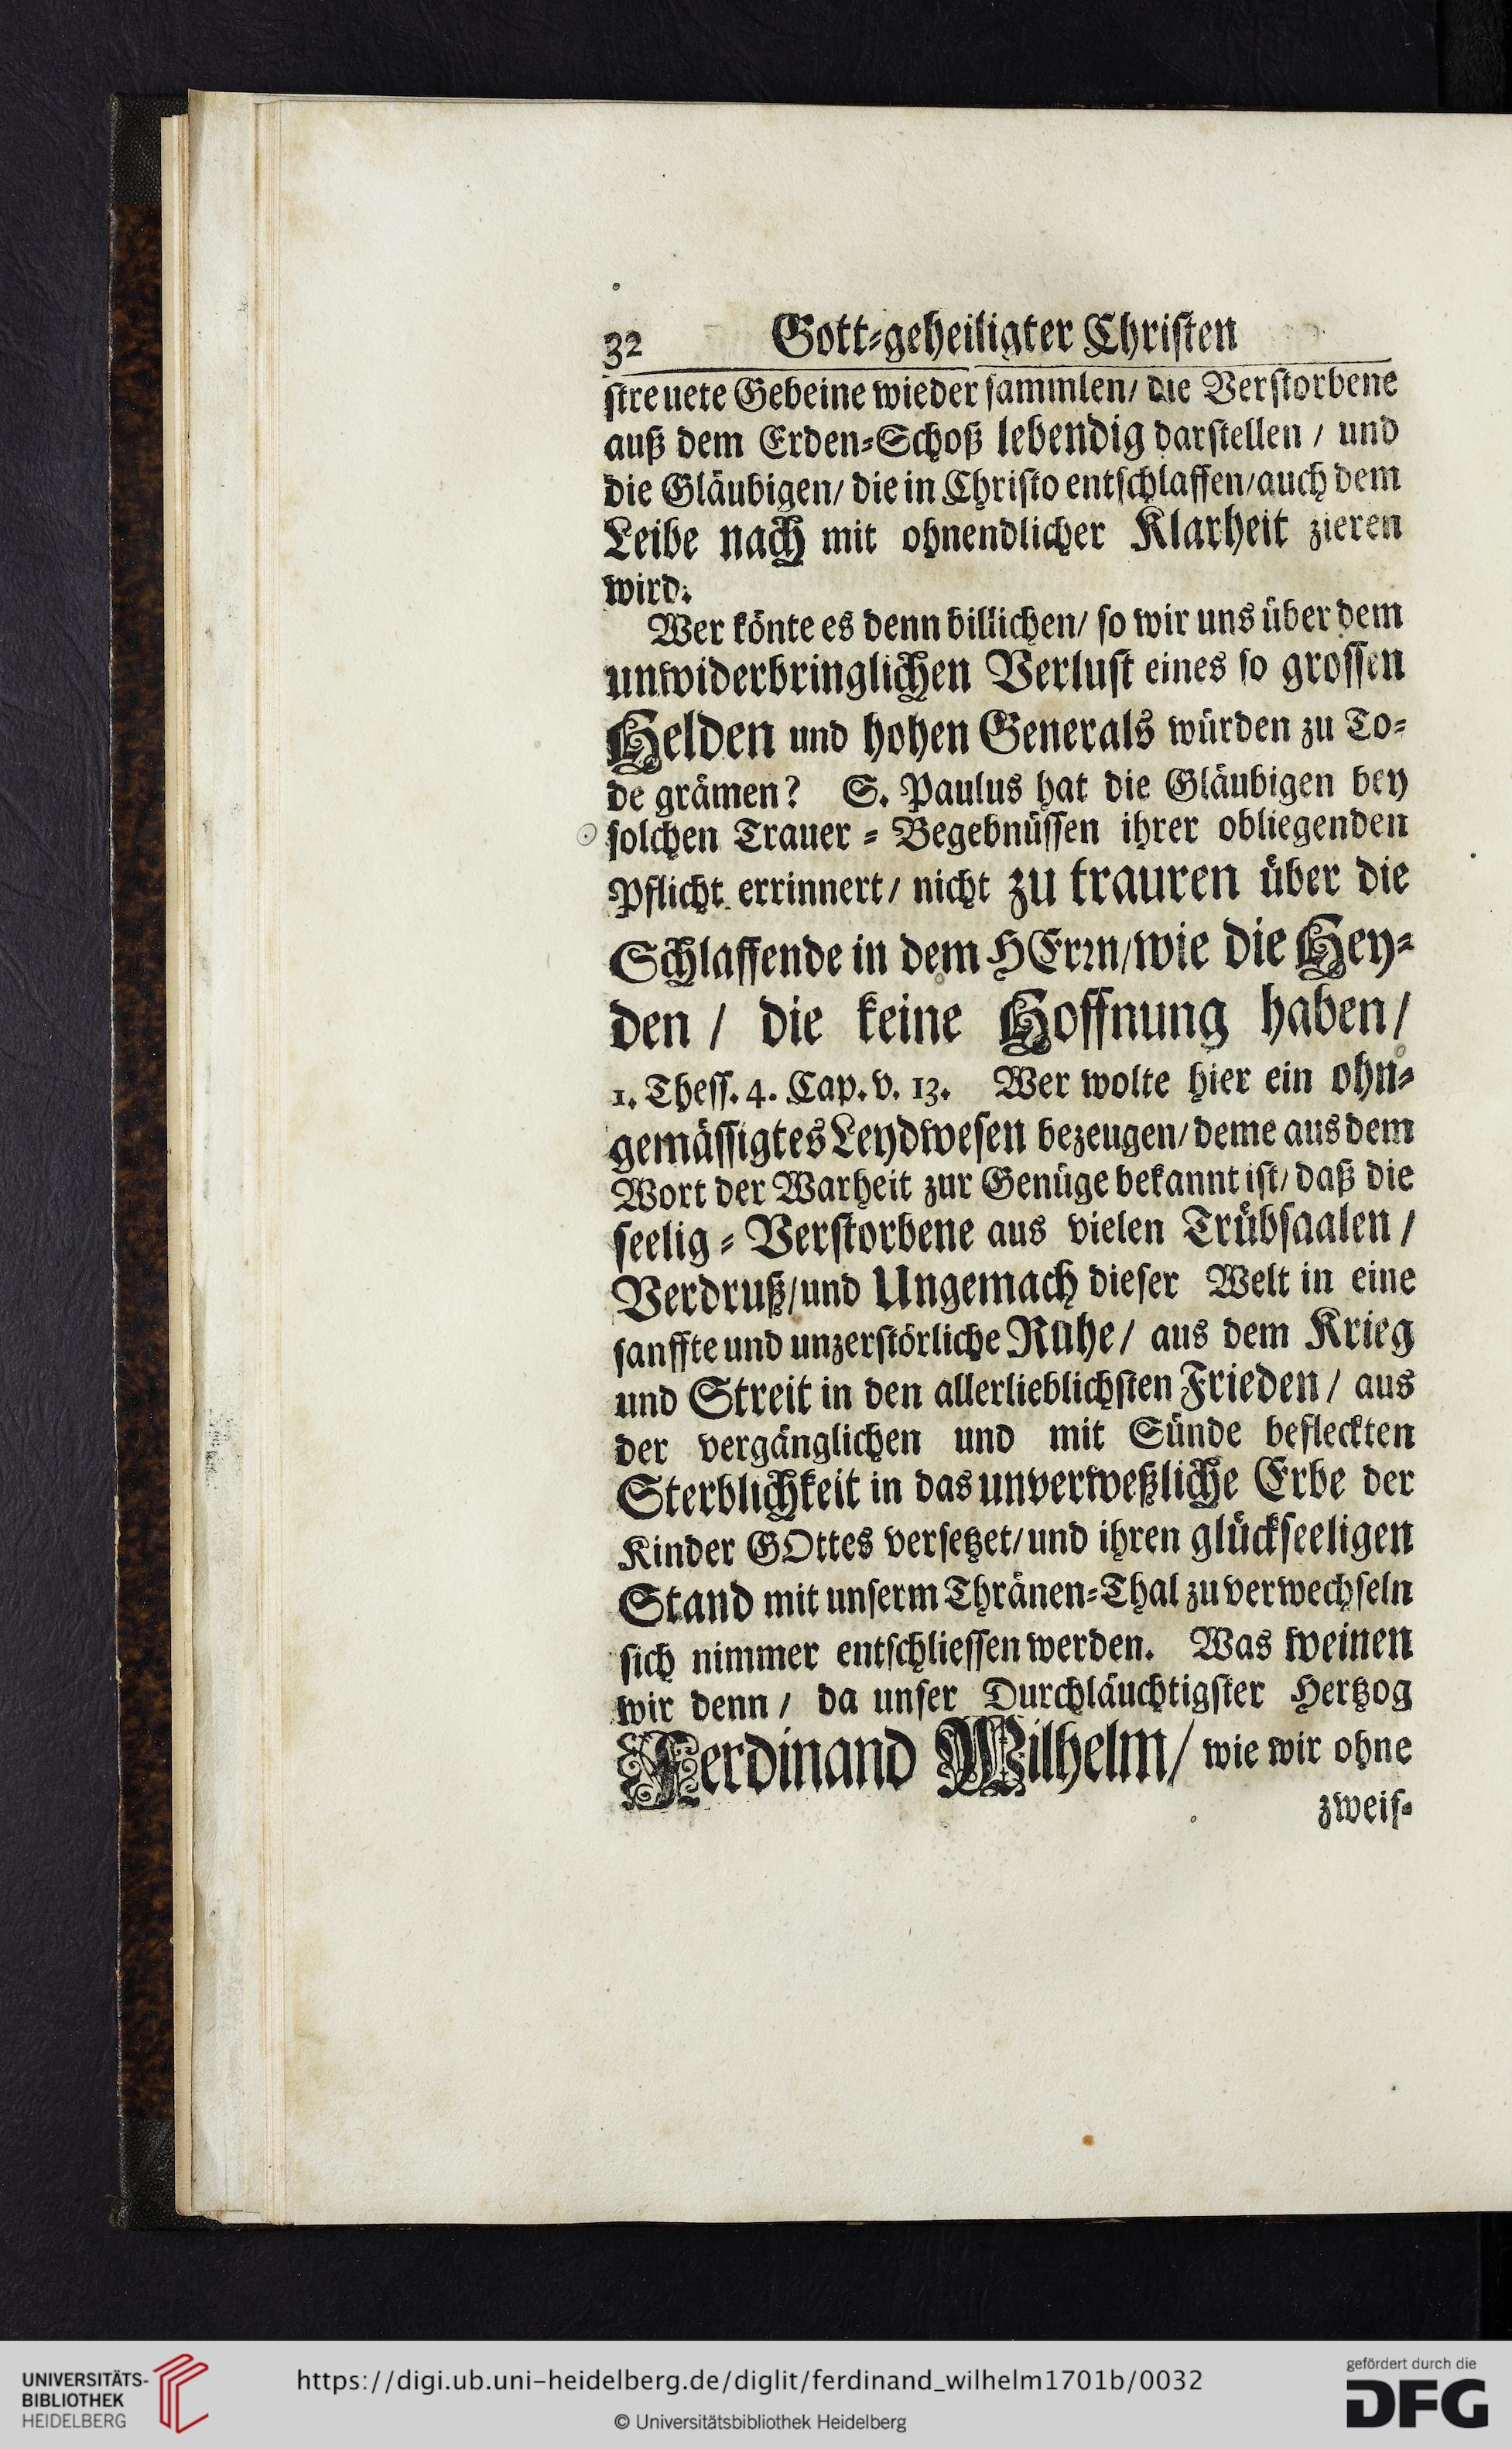 32 Gott-geheiligter Christen
streuete Gebeine wieder sammlen/ die Verstorbene
auß dem Erden-Schoß lebendig darstellen / und
die Gläubigen/ die in Christo entschlaffen/auch dem
Leibe nach mit ohnendlicher Klarheit zieren
wird.
Wer könte es denn billichen/ so wir uns über dem
unwiderbringlichen Verlust eines so grossen
Helden und hohen Generals würden zu To-
de grämen? S. Paulus hat die Gläubigen bey
solchen Trauer-Begebnüssen ihrer obliegenden
Pflicht errinnert/ nicht zu trauren über die
Schlaffende in dem HErrn/wie die Hey-
den / die keine Hoffnung haben/
1. Thess. 4. Cap. v. 13. Wer wolte hier ein ohn-
gemässigtes Leydwesen bezeugen/ deme aus dem
Wort der Warheit zur Genüge bekannt ist/ daß die
seelig-Verstorbene aus vielen Trübsaalen /
Verdruß/und Ungemach dieser Welt in eine
sanffte und unzerstörliche Ruhe/ aus dem Krieg
und Streit in den allerlieblichsten Frieden/ aus
der vergänglichen und mit Sünde befleckten
Sterblichkeit in das unverweßliche Erbe der
Kinder GOttes versetzet/und ihren glückseeligen
Stand mit unserm Thränen-Thal zu verwechseln
sich nimmer entschliessen werden. Was weinen
wir denn / da unser Durchläuchtigster Hertzog
Ferdinand Wilhelm/ wie wir ohne
zweif-
UNIVERSITÄTS-
BIBLIOTHEK
HEIDELBERG
https://digi.ub.uni-heidelberg.de/diglit/ferdinand_wilhelm1701b/0032
© Universitätsbibliothek Heidelberg
gefördert durch die
DFG